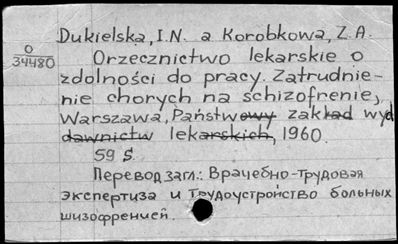 Dukielska, I.N. a Korobkowa, Z.A.
O
34480
Orzecznictwo lekarskie o
zdolności do pracy. Zatrudnie-
nie chorych na schizofrenie,
Warszawa, Państwowy zakład wyd
dawnictw lekarskich, 1960.
59 S.
Перевод загл.: Врачебно-трудовая
экспертиза и Трудоустройство больных
шизофренией.